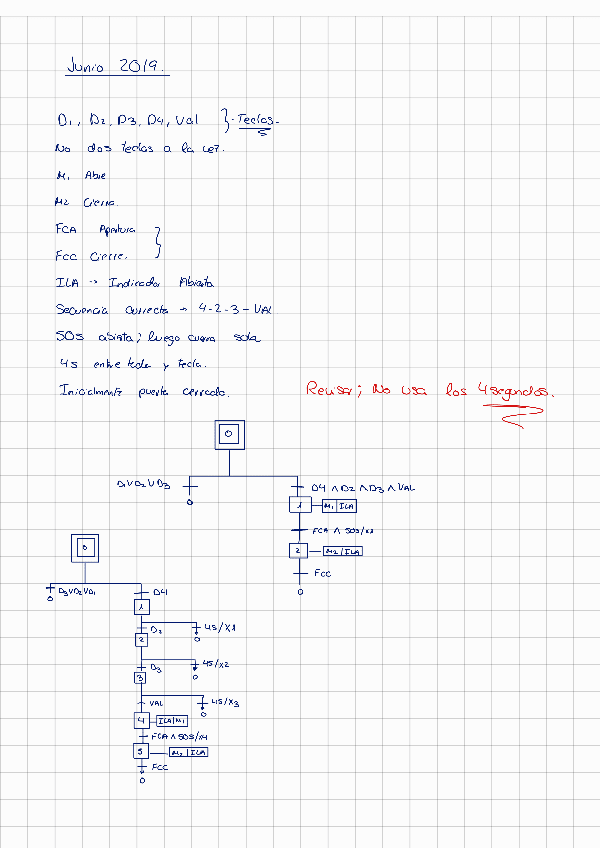 Junio 2019.
D1, D2, D3, D4, Val } Teclas.
5
No dos teclas a la vez.
M1 Abre
M2 Cierra.
FCA Apertura
FCC Cierre.
ILA → Indicador Abierta
Secuencia correcta → 4-2-3-VAL
50s abierta; luego cierra sola
4s entre tecla y tecla.
Inicialmente puerta cerrada.
Revisar; No usa los 4 segundos.
0
D1VD2VD3
0
D4 ∧ D2 ∧ D3 ∧ VAL
1 M1 ILA
FCA ∧ 50s/X1
2 M2 ILA
FCC
0
0
D3VD2VD1
0
D4
1
D2
4s/X1
0
2
D3
4s/X2
0
3
VAL
4s/X3
0
4 ILA M1
FCA ∧ 50s/X4
5 M2 ILA
FCC
0